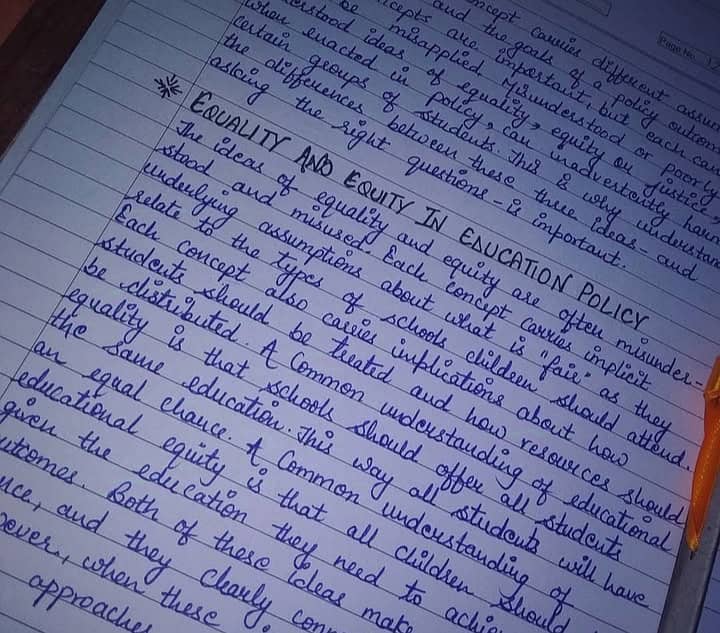 Page No. 12
ncept carries different assum
and the goals of a policy outcom
icepts are important, but each can
be misapplied, misunderstood or poorly
erstood ideas of equality, equity or justice,
when enacted in policy, can inadvertently harm
certain groups of students. This is why understan
the differences between these three ideas - and
asking the right questions - is important.
EQUALITY AND EQUITY IN EDUCATION POLICY
The ideas of equality and equity are often misunder-
stood and misused. Each concept carries implicit
underlying assumptions about what is "fair" as they
relate to the types of schools children should attend.
Each concept also carries implications about how
students should be treated and how resources should
be distributed. A common understanding of educational
equality is that schools should offer all students
the same education. This way all students will have
an equal chance. A common understanding of
educational equity is that all children should
given the education they need to achie
utcomes. Both of these ideas make
nce, and they clearly con
ever, when these
approaches